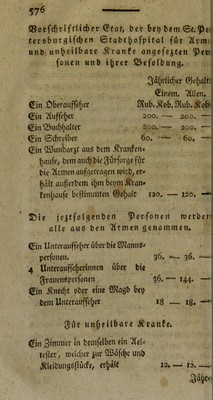 576
Vorschriftlicher Etat, der bey dem St. Pe
tersburgischen Stadthospital für Arm
und unheilbare Kranke angesetzten Per
sonen und ihrer Besoldung.
Jährlicher Gehalt
Einem. Allen.
Ein Oberaufseher Rub. Kob. Rub. Kob
Ein Aufseher 200. — 200. —
Ein Buchhalter 200. — 200. —
Ein Schreiber 60. — 60. —
Ein Wundarzt aus dem Kranken-
hause, dem auch die Fürsorge für
die Armen aufgetragen wird, er-
hält außerdem ihm beym Kran-
kenhause bestimmten Gehalt 120. — 120. —
Die jeztfolgenden Personen werden
alle aus den Armen genommen.
Ein Unteraufseher über die Manns-
personen. 36. — 36. —
4 Unteraufseherinnen über die
Frauenspersonen 36. — 144. —
Ein Knecht oder eine Magd bey
dem Unteraufseher 18 — 18. —
Für unheilbare Kranke.
Ein Zimmer in demselben ein Ael-
tester, welcher zur Wäsche und
Kleidungsstücke, erhält 12. — 12. —
Jähr-